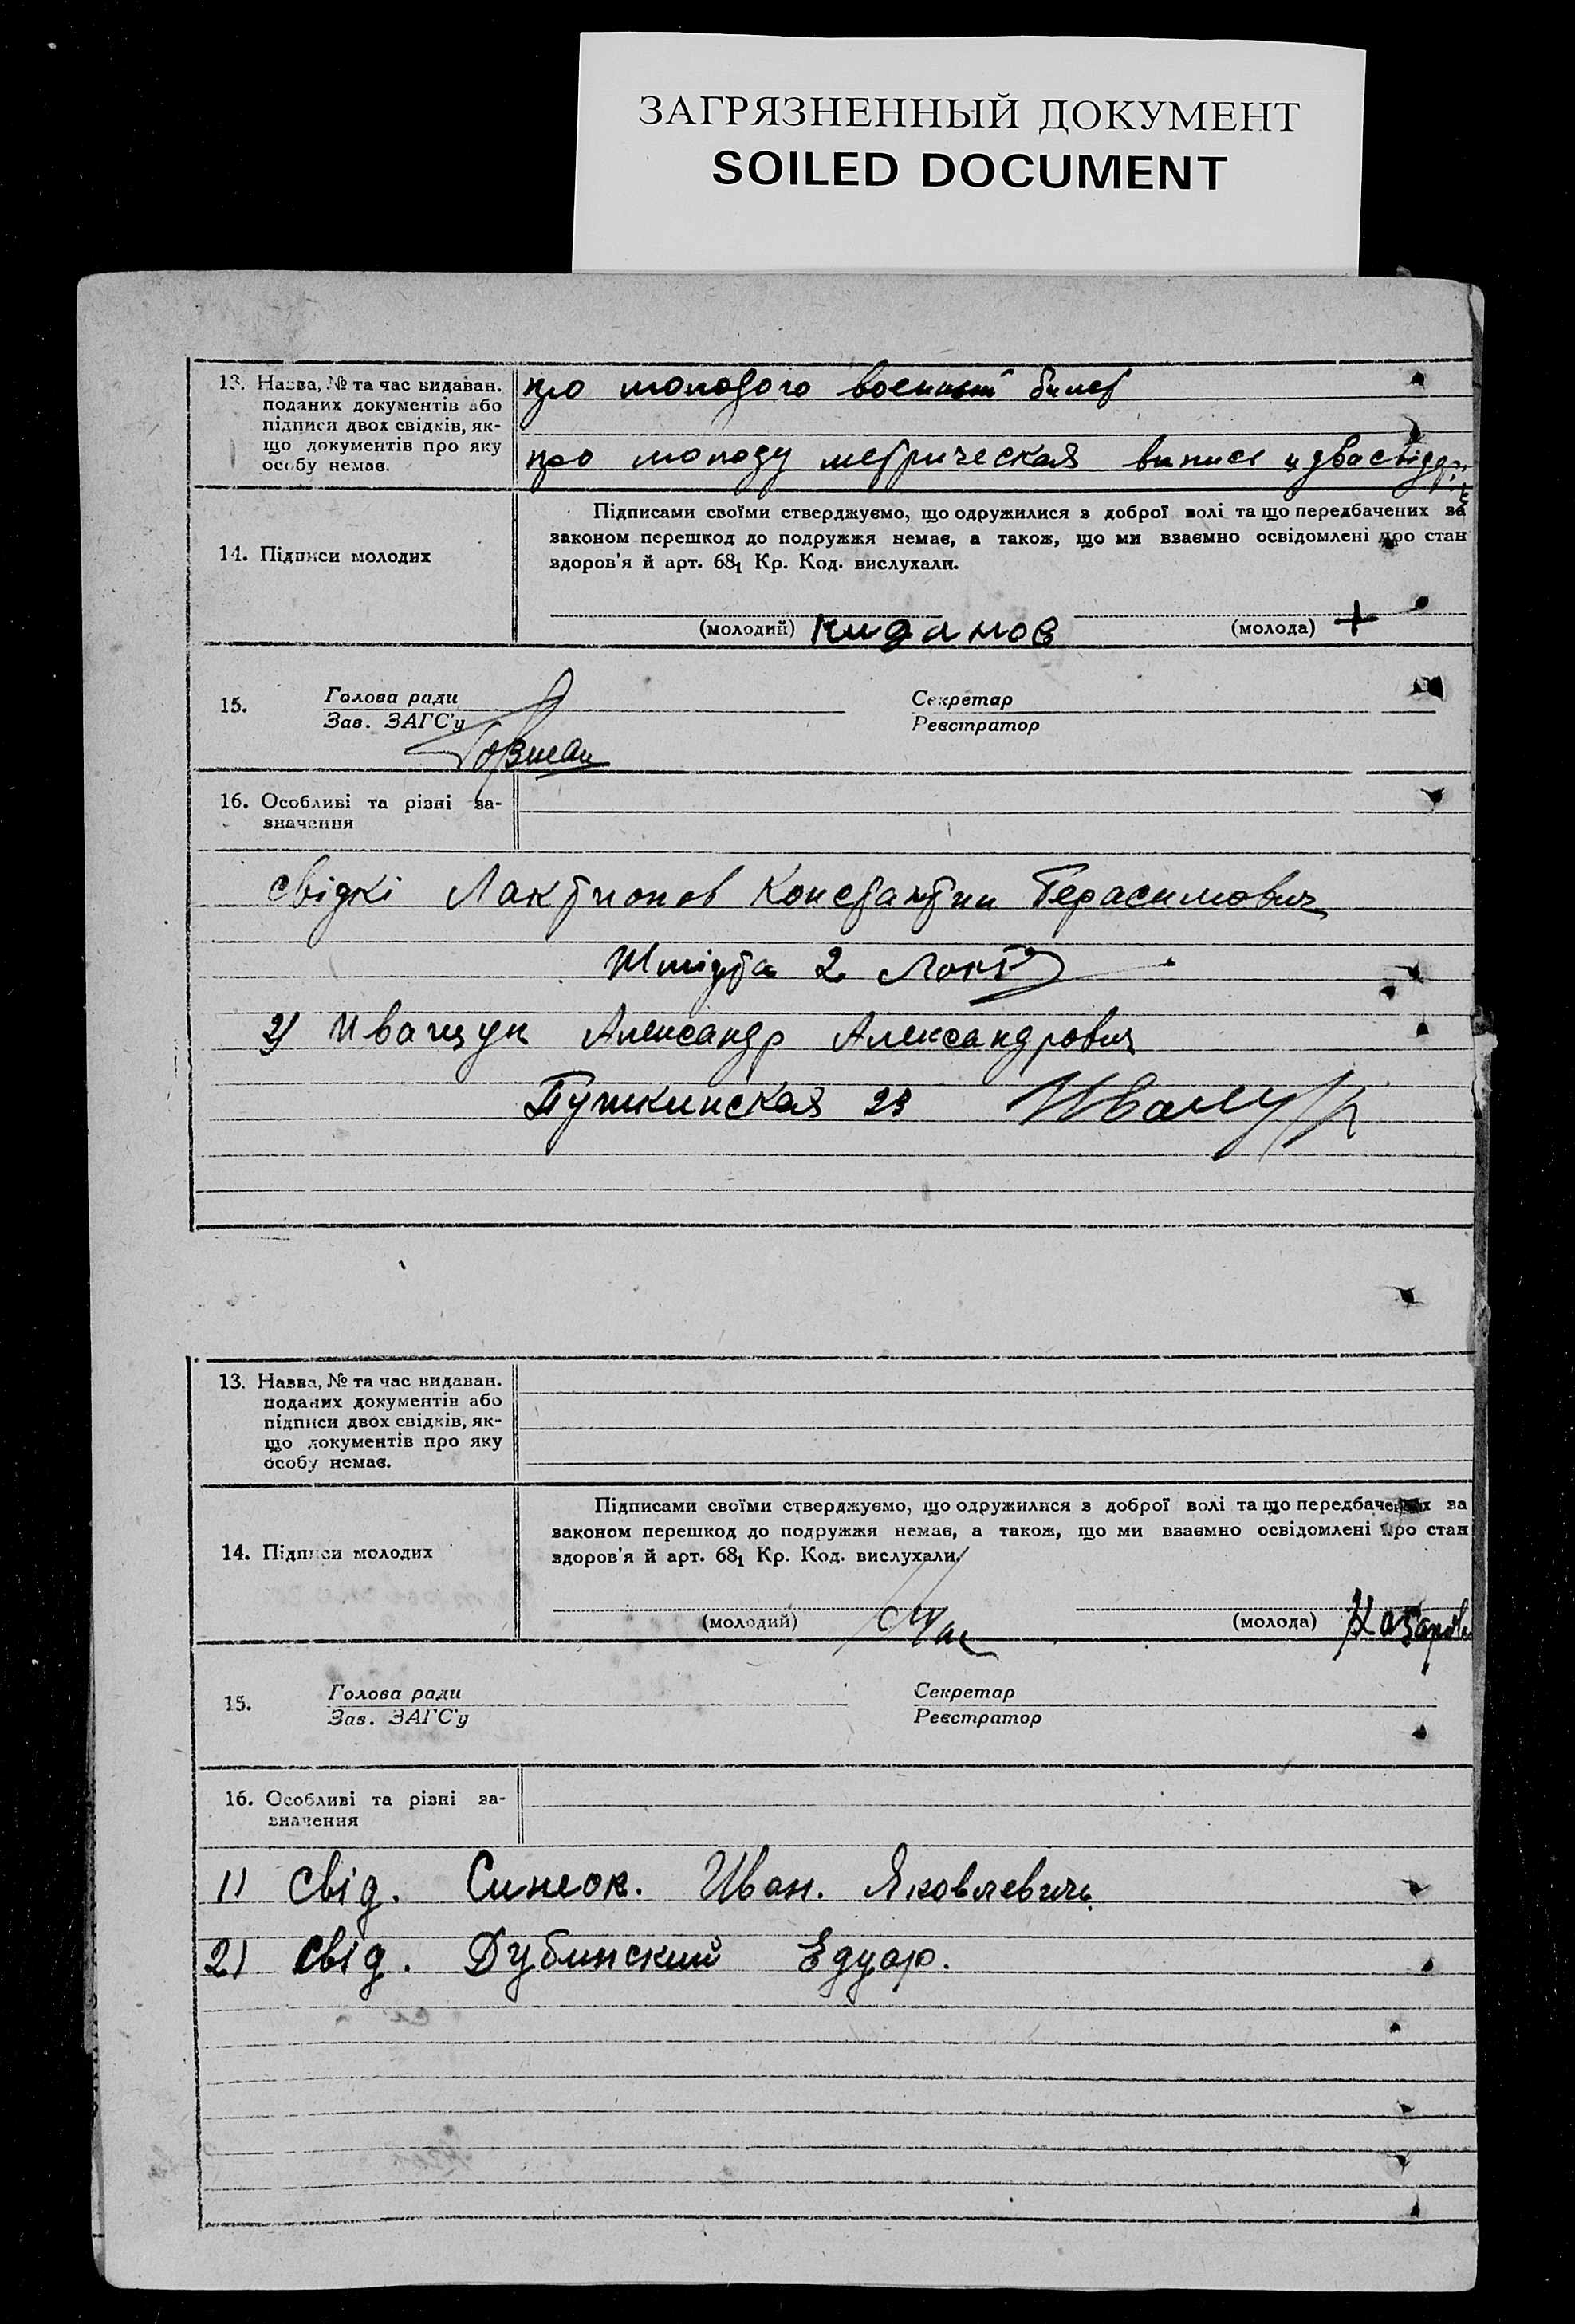 ЗАГРЯЗНЕННЫЙ ДОКУМЕНТ
SOILED DOCUMENT
13. Назва, № та час видаван.
поданих документів або
підписи двох свідків, як-
що документів про яку
особу немає.
про молодого военный билет
про молоду метрическая випись
14. Підписи молодих
Підписами своїми стверджуємо, що одружилися з доброї волі та що передбачених за
законом перешкод до подружжя немає, а також, що ми взаємно освідомлені про стан
здоров'я й арт. 68₁ Кр. Код. вислухали.
(молодий) Киданов (молода) +
15. Голова ради Секретар
Зав. ЗАГС'у Реєстратор
16. Особливі та різні за-
значення
Свідкі Лактионов Константин Герасимович
Шмідта 2
2) Иващук Александр Александрович
Пушкинская 23 Иващук
13. Назва, № та час видаван.
поданих документів або
підписи двох свідків, як-
що документів про яку
особу немає.
14. Підписи молодих
Підписами своїми стверджуємо, що одружилися з доброї волі та що передбачених за
законом перешкод до подружжя немає, а також, що ми взаємно освідомлені про стан
здоров'я й арт. 68₁ Кр. Код. вислухали.
(молодий) (молода)
15. Голова ради Секретар
Зав. ЗАГС'у Реєстратор
16. Особливі та різні за-
значення
1) Свід. Синеок. Иван. Яковлевичь.
2) Свід. Дубинский Едуар.